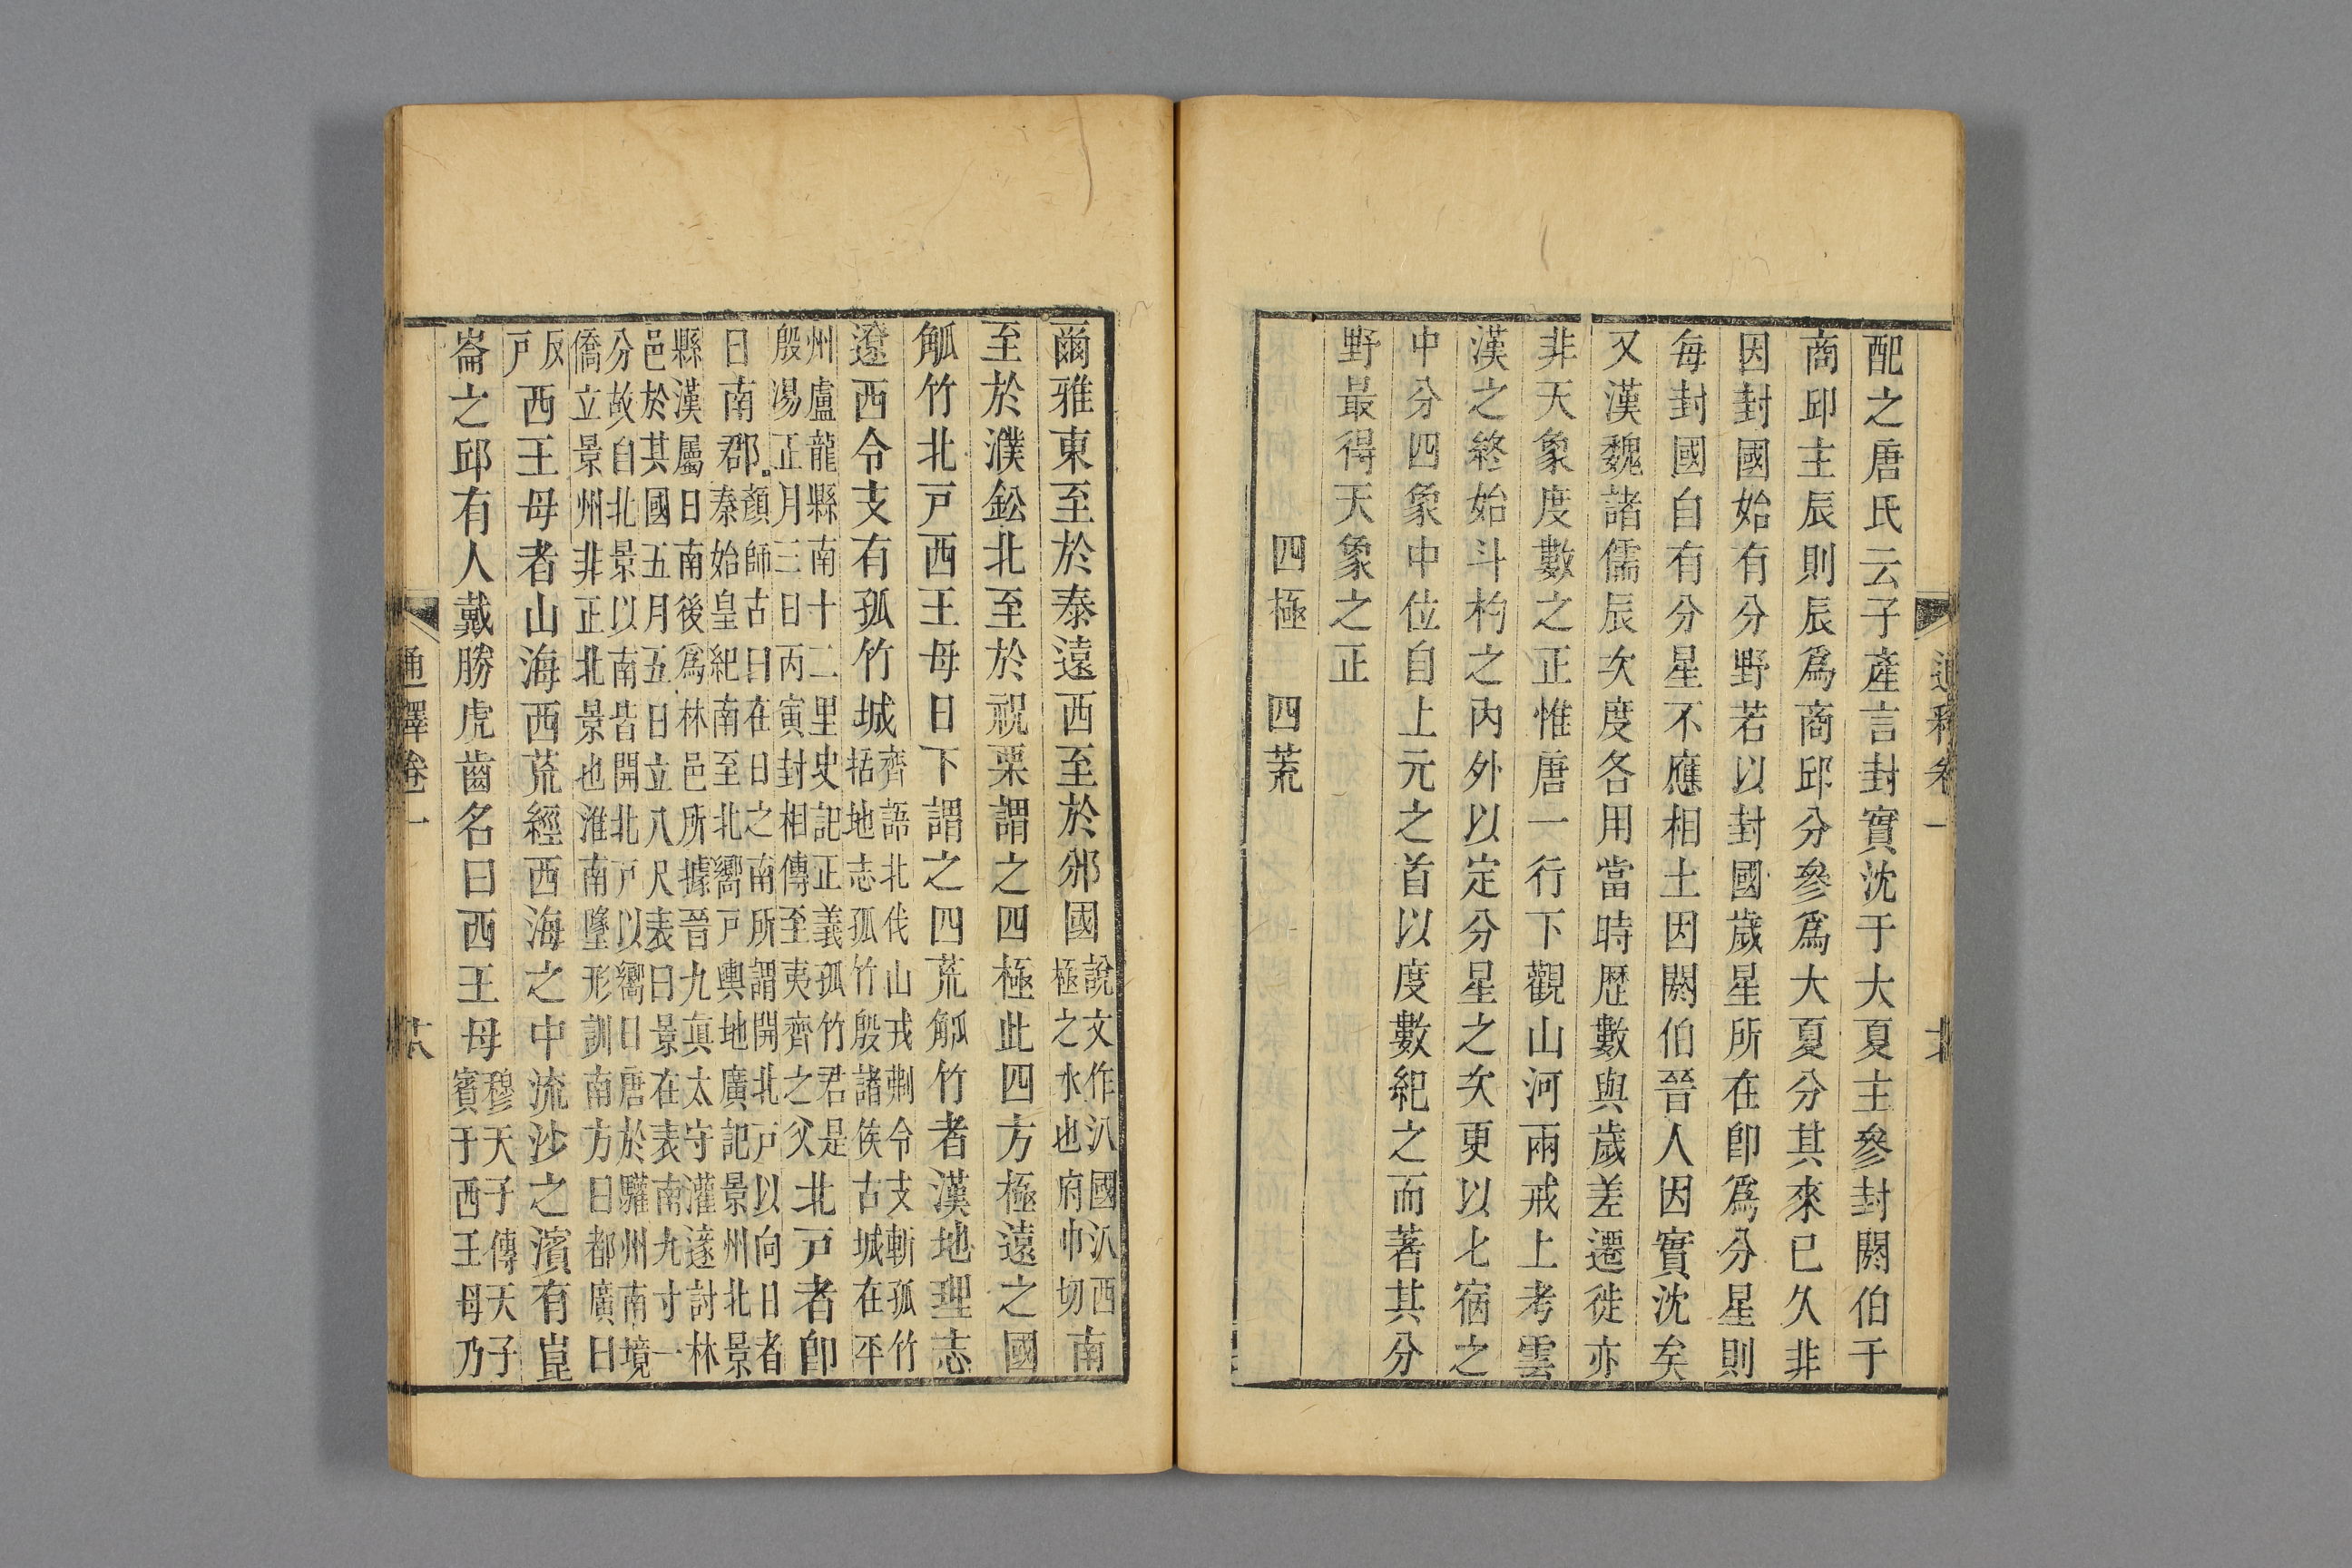 配之唐氏云子產言封實沈于大夏主參封閼伯于
商邱主辰則辰爲商邱分參爲大夏分其來已久非
因封國始有分野若以封國歲星所在卽爲分星則
每封國自有分星不應相土因閼伯晉人因實沈矣
又漢魏諸儒辰次度各用當時歴數與歲差遷徙亦
非天象度數之正惟唐一行下觀山河兩戒上考雲
漢之終始斗杓之內外以定分星之次更以七宿之
中分四象中位自上元之首以度數紀之而著其分
野最得天象之正
四極　四荒
爾雅東至於泰遠西至於邠國說文作汃國汃西極之水也府巾切南
至於濮鈆北至於祝栗謂之四極此四方極遠之國
觚竹北戸西王母日下謂之四荒觚竹者漢地理志
遼西令支有孤竹城齊語北伐山戎刜令支斬孤竹括地志孤竹殷諸侯古城在平
州盧龍縣南十二里史記正義孤竹君是殷湯正月三日丙寅封相傳至夷齊之父北戸者卽
日南郡顏師古曰在日之南所謂開北戸以向日者秦始皇紀南至北嚮戸輿地廣記景州北景
縣漢屬日南後爲林邑所據晉九眞太守灌邃討林邑於其國五月五日立八尺表日景在表南九寸一
分故自北景以南皆開北戸以嚮日唐於驩州南境僑立景州非正北景也淮南墬形訓南方曰都廣曰
反戸西王母者山海西荒經西海之中流沙之濱有崑
崙之邱有人戴勝虎齒名曰西王母穆天子傳天子賓于西王母乃
通釋卷一